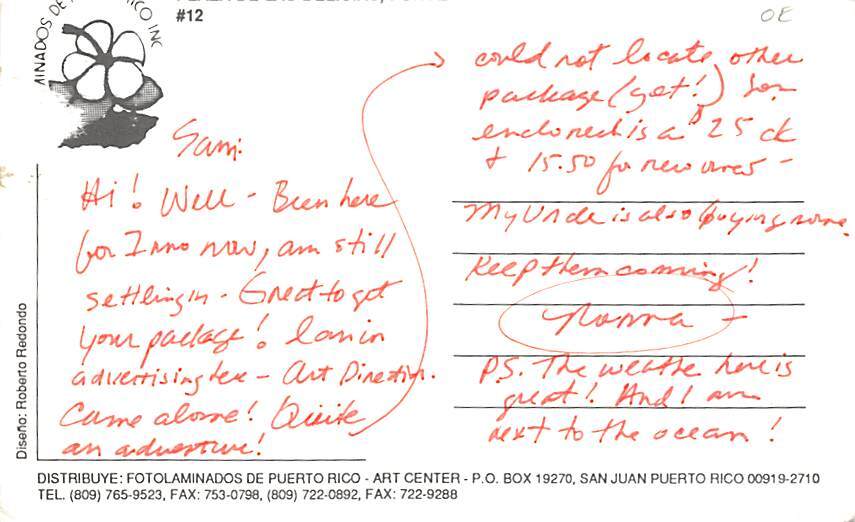 #12
MINADOS DE
RICO INC
OE
Sam:
Hi! Well - Been here
for 2 mo now, am still
settling in - Great to get
your package! I am in
advertising here - Art Direction.
Came alone! Quite
an adventure!
could not locate other
package (yet!) So
enclosed is a $25 ck
+ 15.50 for new ones -
My Uncle is also buying some.
Keep them coming!
P.S. The weather here is
great! And I am
next to the ocean!
Diseño: Roberto Redondo
DISTRIBUYE: FOTOLAMINADOS DE PUERTO RICO - ART CENTER - P.O. BOX 19270, SAN JUAN PUERTO RICO 00919-2710
TEL. (809) 765-9523, FAX: 753-0798, (809) 722-0892, FAX: 722-9288